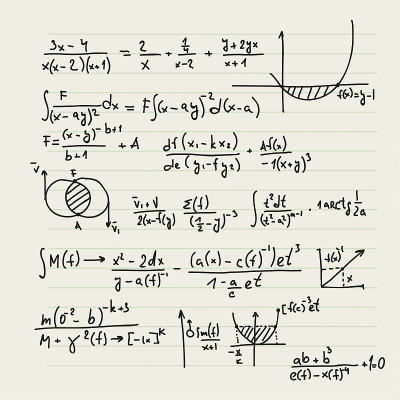 3x-4 / x(x-2)(x+1) = 2/x + 1/4 / x-2 + y+2yx / x+1
f(x)=y-1
∫ F / (x-ay)² dx = F∫(x-ay)⁻² d(x-a)
F= (x-y)^-b+1 / b+1 + A
df(x₁-kx₂) / de(y₁-fy₂) + Af(x) / -1(x+y)³
V F A V₁
V₁+V / 2(x-f(y)) Σ(f) / (1/2-y)⁻³ ∫ t²dt / (t²-a²)ⁿ⁻¹ · 1 arctg 1/2a
∫M(f) → x²-2dx / y-a(f)⁻¹ - (a(x)-c(f)⁻¹)et³ / 1-a/c et
f(x)⁻¹ x
m(0⁻²-b)^-k+3 / M+γ²(f)→[-1x]^k
∫m(f) / x+1
[f(c)⁻³et
-x/k
ab+b³ / e(f)-x(f)⁻⁴ +1=0